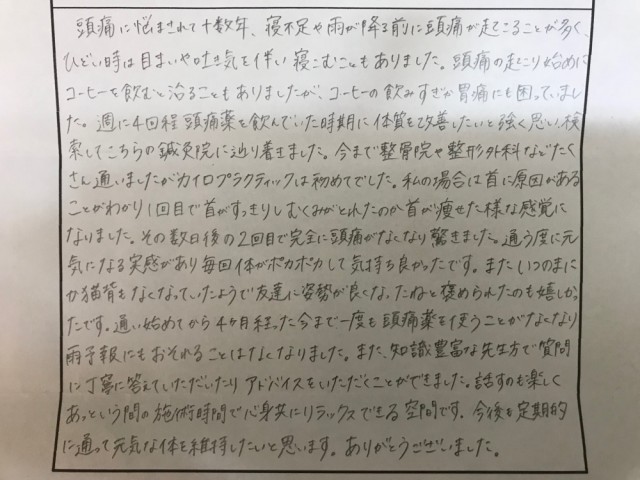 頭痛に悩まされて十数年、寝不足や雨が降る前に頭痛が起こることが多く、
ひどい時は目まいや吐き気を伴い寝こむこともありました。頭痛の起こり始めに
コーヒーを飲むと治ることもありましたが、コーヒーの飲みすぎか胃痛にも困っていまし
た。週に4回程頭痛薬を飲んでいた時期に体質を改善したいと強く思い、検
索してこちらの鍼灸院に辿り着きました。今まで整骨院や整形外科などたく
さん通いましたがカイロプラクティックは初めてでした。私の場合は首に原因がある
ことがわかり1回目で首がすっきりしむくみがとれたのか首が痩せた様な感覚に
なりました。その数日後の2回目で完全に頭痛がなくなり驚きました。通う度に元
気になる実感があり毎回体がポカポカして気持ち良かったです。またいつのまに
か猫背もなくなっていたようで友達に姿勢が良くなったねと褒められたのも嬉しか
ったです。通い始めてから4ヶ月経った今まで一度も頭痛薬を使うことがなくなり
雨予報にもおそれることはなくなりました。また、知識豊富な先生方で質問
に丁寧に答えていただいたりアドバイスをいただくことができました。話すのも楽しく
あっという間の施術時間で心身共にリラックスできる空間です。今後も定期的
に通って元気な体を維持したいと思います。ありがとうございました。